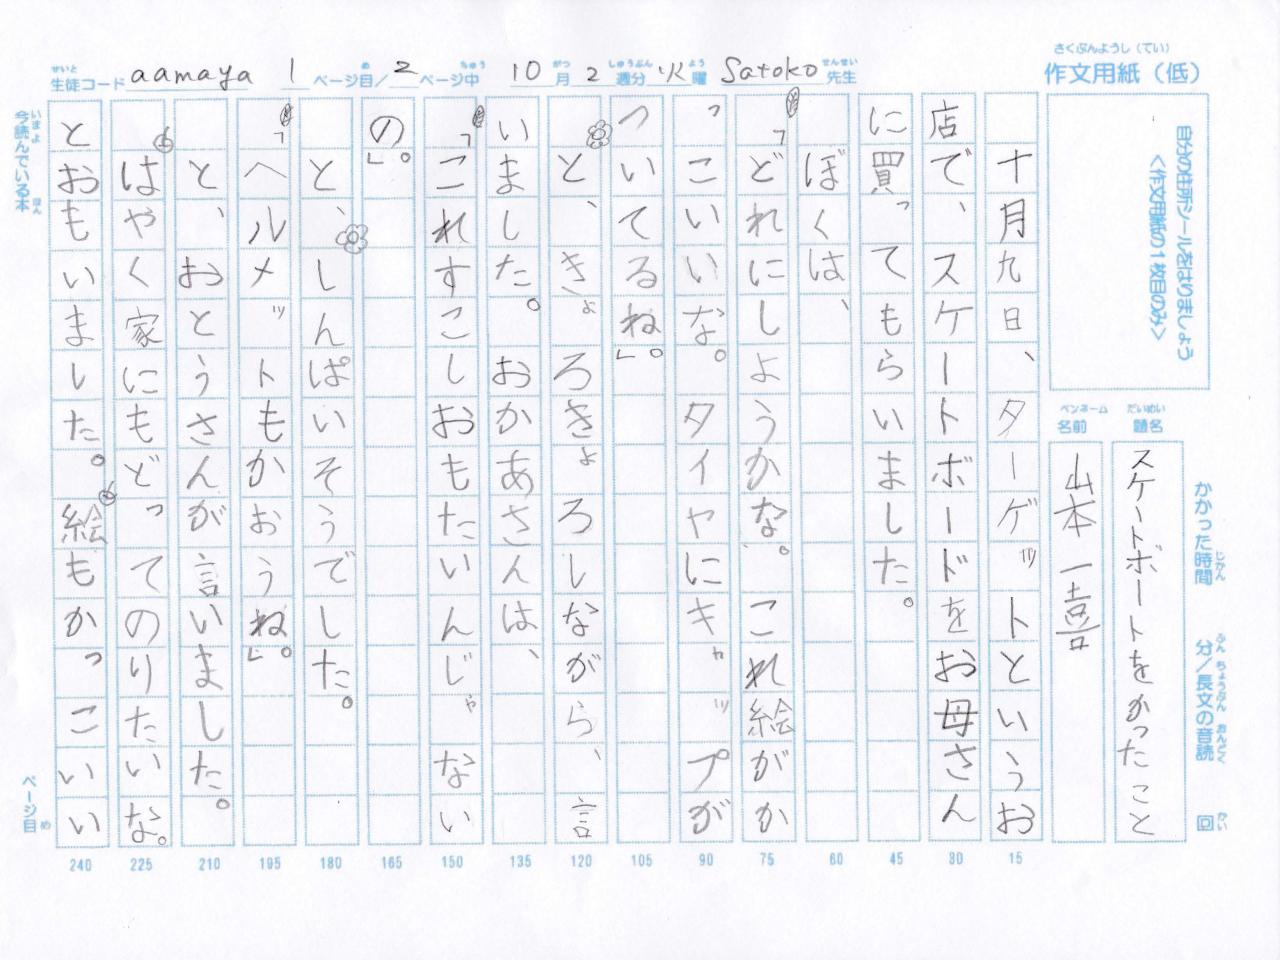 さくぶんようし（てい）
作文用紙（低）
せいと めちゅう がつ しゅうぶん よう せんせい
生徒コード aamaya 1 ページ目／2 ページ中 10月2週分 火曜 Satoko先生
自分の住所シールをはりましょう
＜作文用紙の1枚目のみ＞
だいめい
題名
スケートボートをかったこと
ペンネーム
名前
山本一喜
かかった時間 分／長文の音読 回
じかん ふん ちょうぶん おんどく かい
十月九日、ターゲットというお
店で、スケートボードをお母さん
に買ってもらいました。
ぼくは、
「どれにしようかな。これ絵がか
っこいいな。タイヤにキャップが
ついてるね。」
と、きょろきょろしながら、言
いました。おかあさんは、
「これすこしおもたいんじゃない
の。」
と、しんぱいそうでした。
「ヘルメットもかおうね。」
と、おとうさんが言いました。
はやく家にもどってのりたいな。
とおもいました。絵もかっこいい
15
30
45
60
75
90
105
120
135
150
165
180
195
210
225
240
いまよ ほん
今読んでいる本
ページ目
め